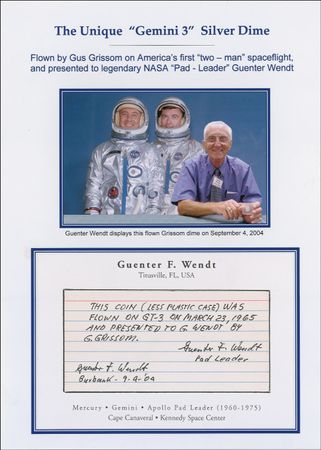 The Unique "Gemini 3" Silver Dime
Flown by Gus Grissom on America's first "two – man" spaceflight,
and presented to legendary NASA "Pad - Leader" Guenter Wendt
Guenter Wendt displays this flown Grissom dime on September 4, 2004
Guenter F. Wendt
Titusville, FL, USA
THIS COIN (LESS PLASTIC CASE) WAS
FLOWN ON GT-3 ON MARCH 23, 1965
AND PRESENTED TO G. WENDT BY
G. GRISSOM.
Guenter F. Wendt
Pad Leader
Guenter F. Wendt
Burbank - 9-4-04
Mercury • Gemini • Apollo Pad Leader (1960-1975)
Cape Canaveral • Kennedy Space Center